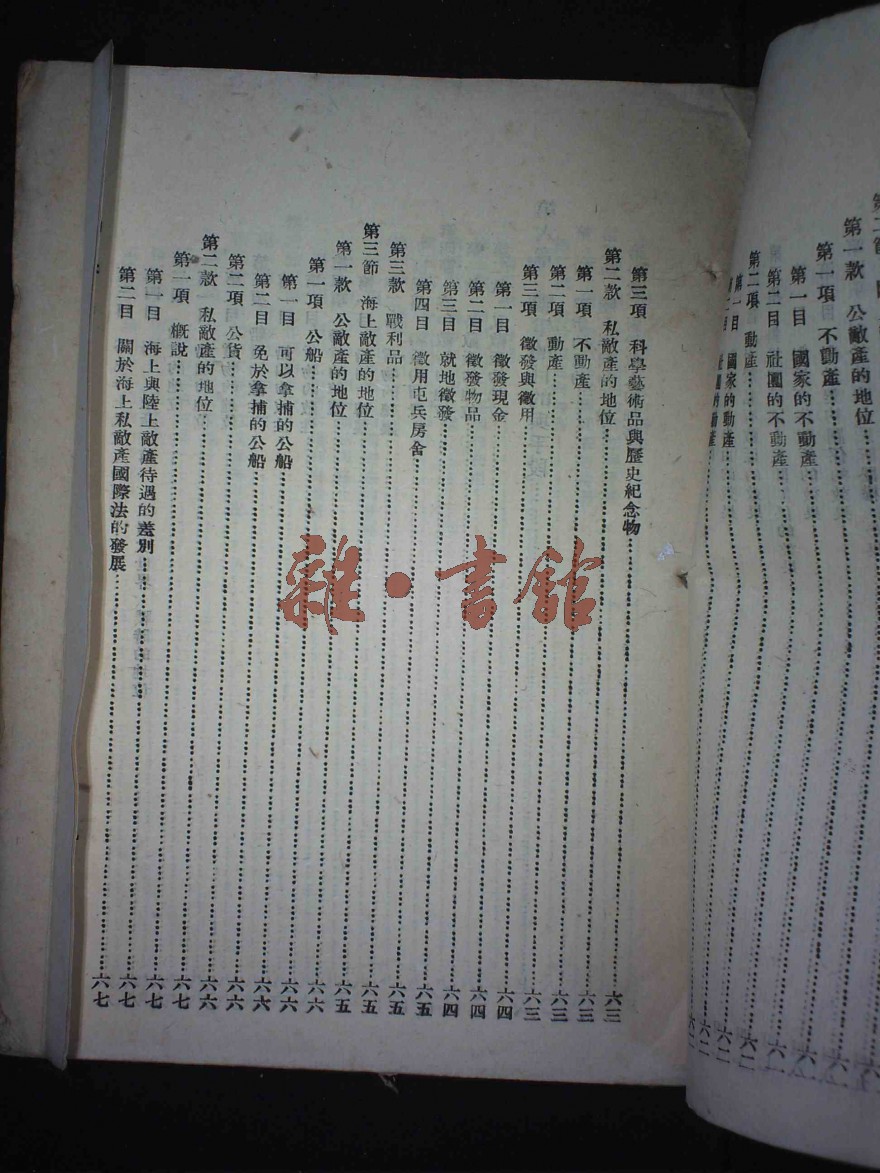 第一款 公敵產的地位
第一項 不動產
第一目 國家的不動產
第二目 社團的不動產
第二項 動產……六二
第一目 國家的動產……六二
第二目 社團的動產……六二
第三項 科學藝術品與歷史紀念物……六三
第二款 私敵產的地位……六三
第一項 不動產……六三
第二項 動產……六三
第三項 徵發與徵用……六四
第一目 徵發現金……六四
第二目 徵發物品……六四
第三目 就地徵發……六五
第四目 徵用屯兵房舍……六五
第三款 戰利品……六五
第三節 海上敵產的地位……六五
第一款 公敵產的地位……六六
第一項 公船……六六
第一目 可以拿捕的公船……六六
第二目 免於拿捕的公船……六六
第二項 公貨……六六
第二款 私敵產的地位……六七
第一項 概說……六七
第一目 海上與陸上敵產待遇的差別……六七
第二目 關於海上私敵產國際法的發展……六七
雜·書館